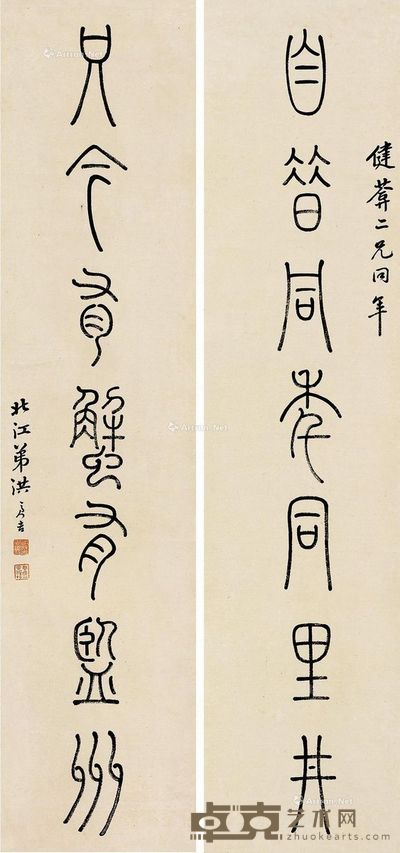 健葊二兄同年
自昔同年同里井
只今有蟹有監州
北江弟洪亮吉
卓克艺术网
zhuokearts.com
Artron.Net